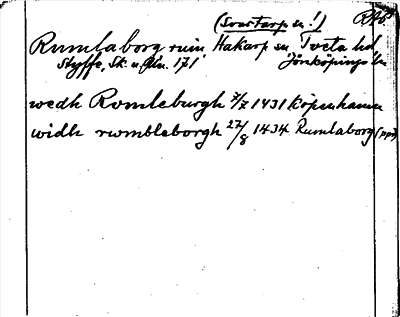 (Svartarp sn!) RAÖ
Rumlaborg ruin, Hakarp sn Tveta hd
Styffe, Sk. u. Un. 171. Jönköpings län
wedh Romleburgh 7/7 1431 Köpenhamn
widh rwmbleborgh 27/8 1434 Rumlaborg (ppr)